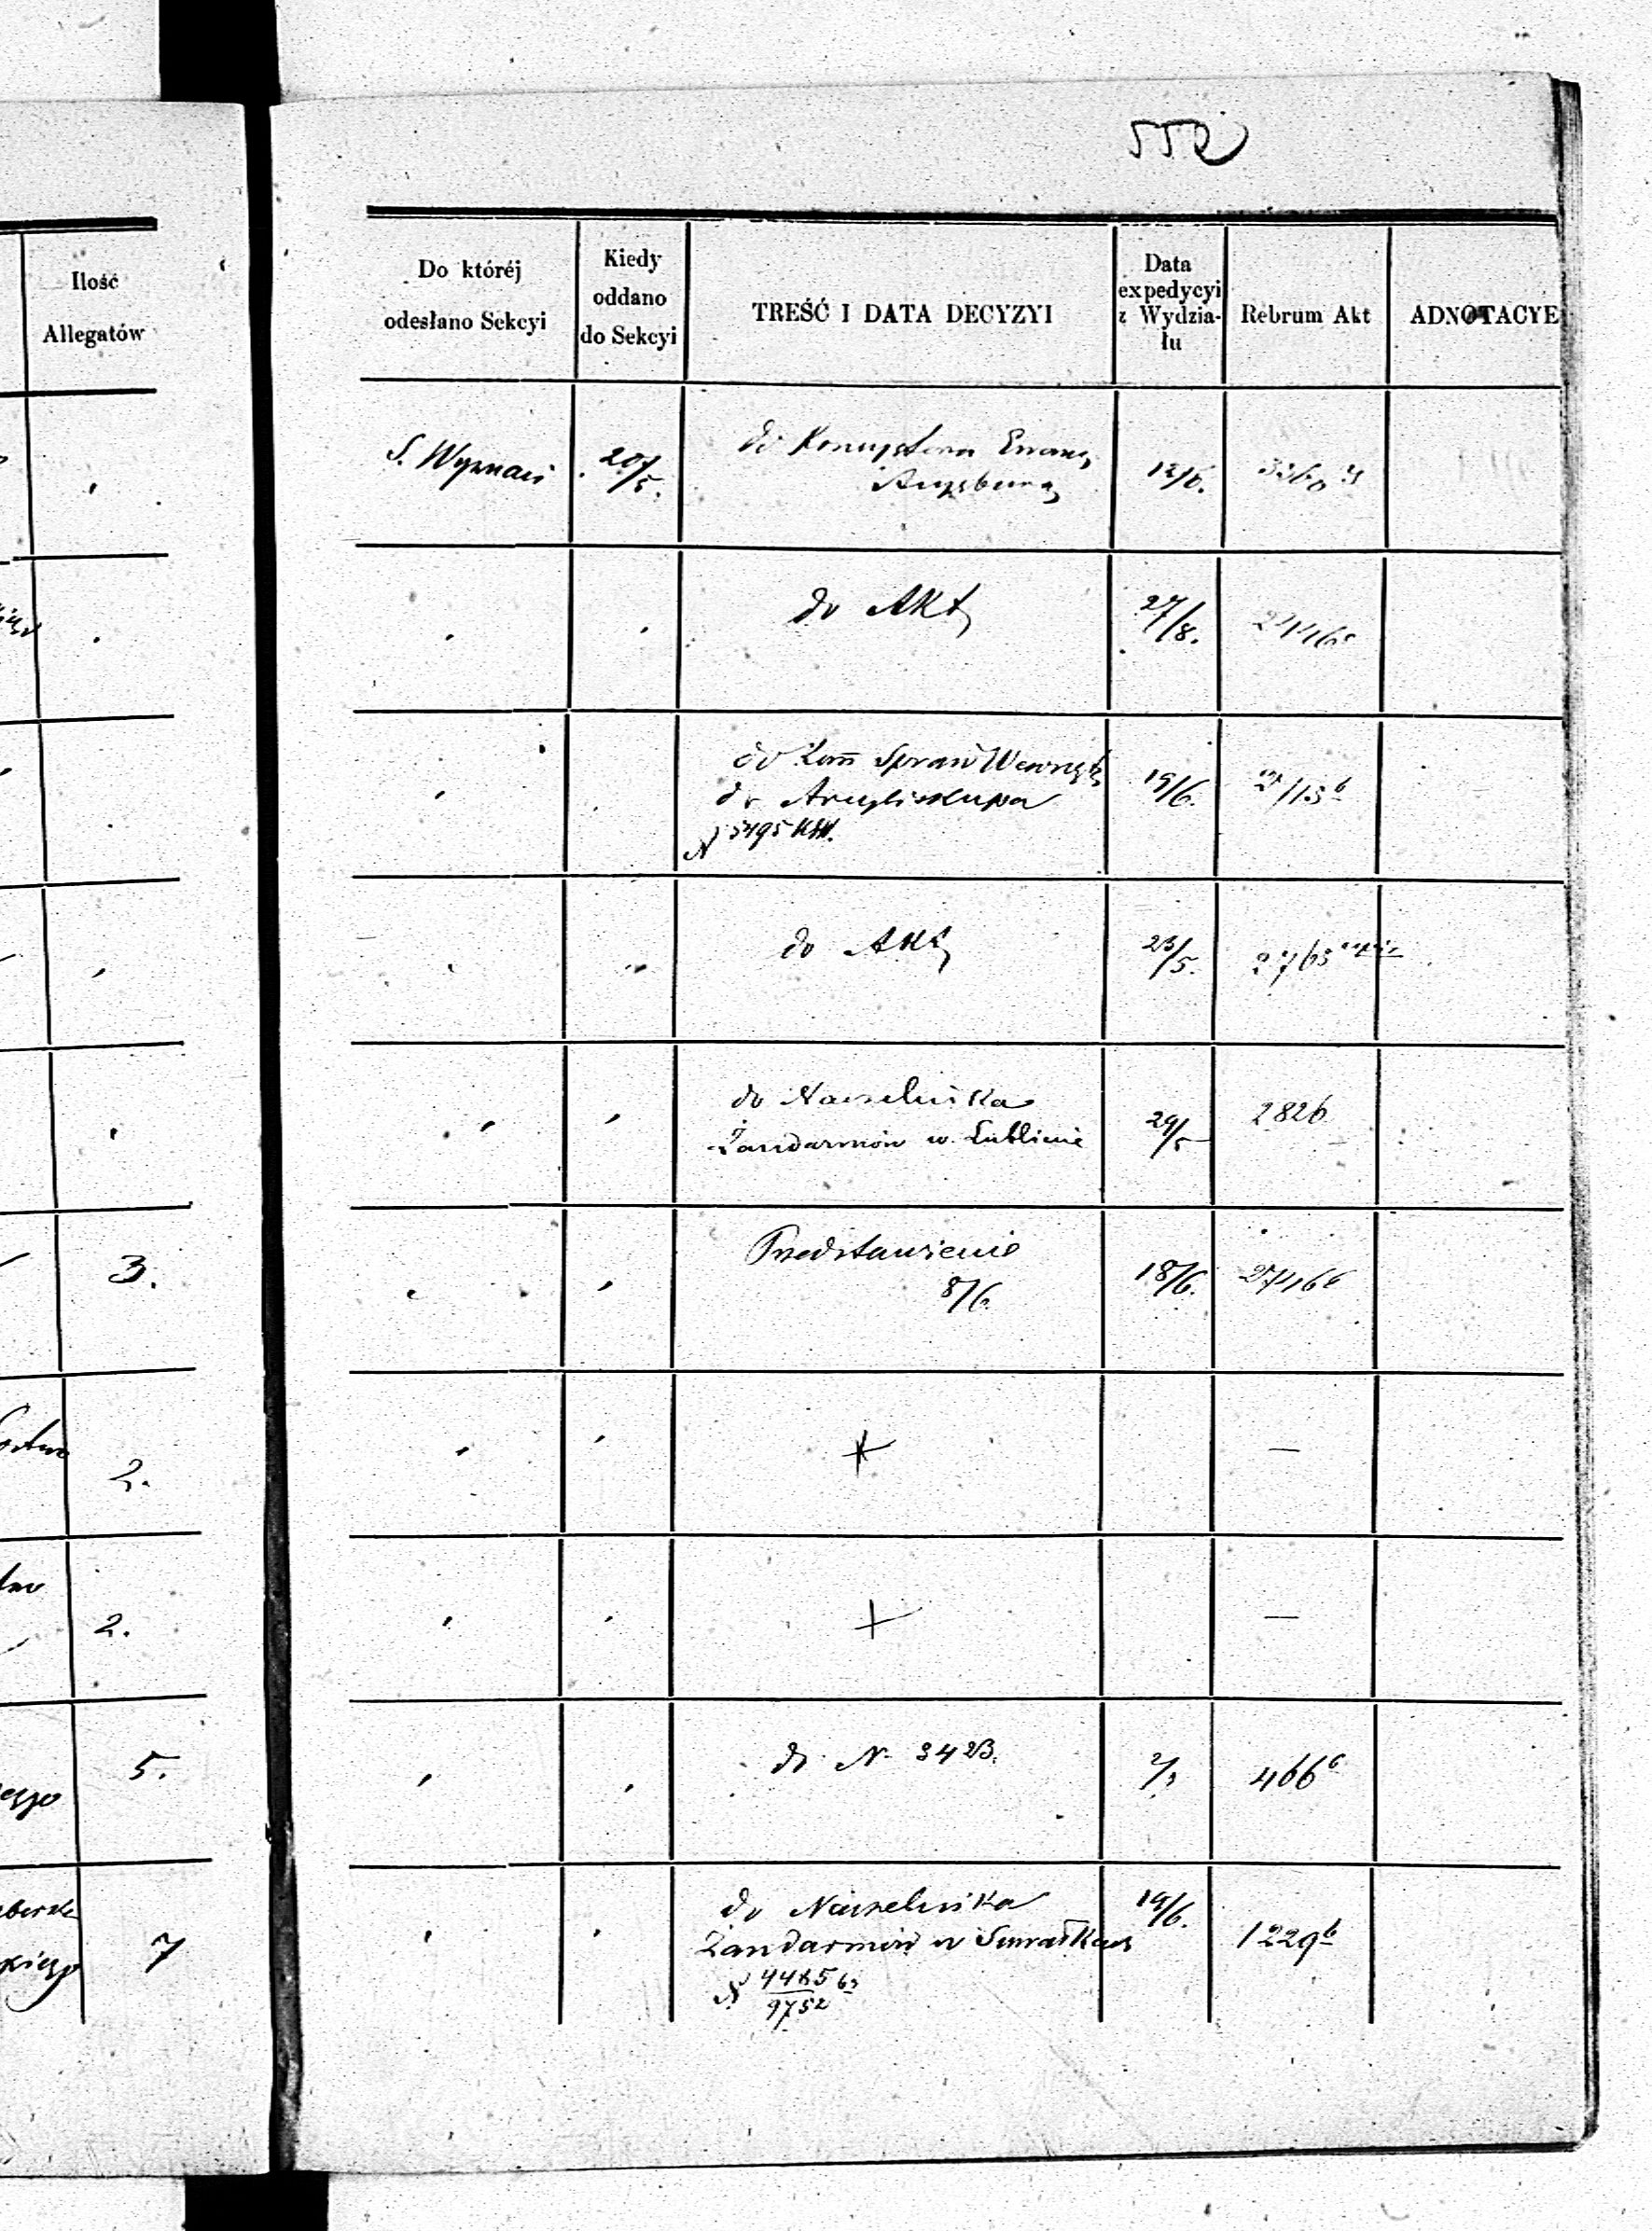 552
Ilość
Allegatów
Do któréj
odesłano Sekcyi
Kiedy
oddano
do Sekcyi
TREŚĆ I DATA DECYZYI
Data
expedycyi
z Wydzia-
łu
Rebrum Akt
ADNOTACYE
S. Wyznań
20/5.
do Konsystorza Ewang
Augsburg
12/6.
do Akt
27/8.
do Kom Spraw Wewnętz
do Arcybiskupa
N 3495
19/6.
do Akt
23/5.
2765
do Naczelnika
Żandarmów w Lublinie
29/5
2826
3.
Przedstawienie
8/6
18/6.
2.
—
2.
—
5.
do N. 3423.
2/3
466
7
do Naczelnika
Żandarmów w Suwałkach
N 4485/9752
19/6.
1229